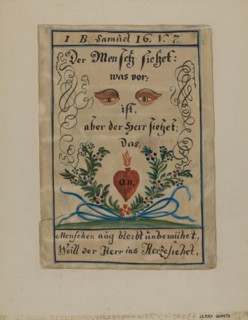 I B. Samuel 16. V. 7.
Der Mensch siehet:
was vor:
ist.
aber der Herr siehet:
Das
Menschen aug bleibt unbemühet,
Weill der Herr ins Herze siehet.